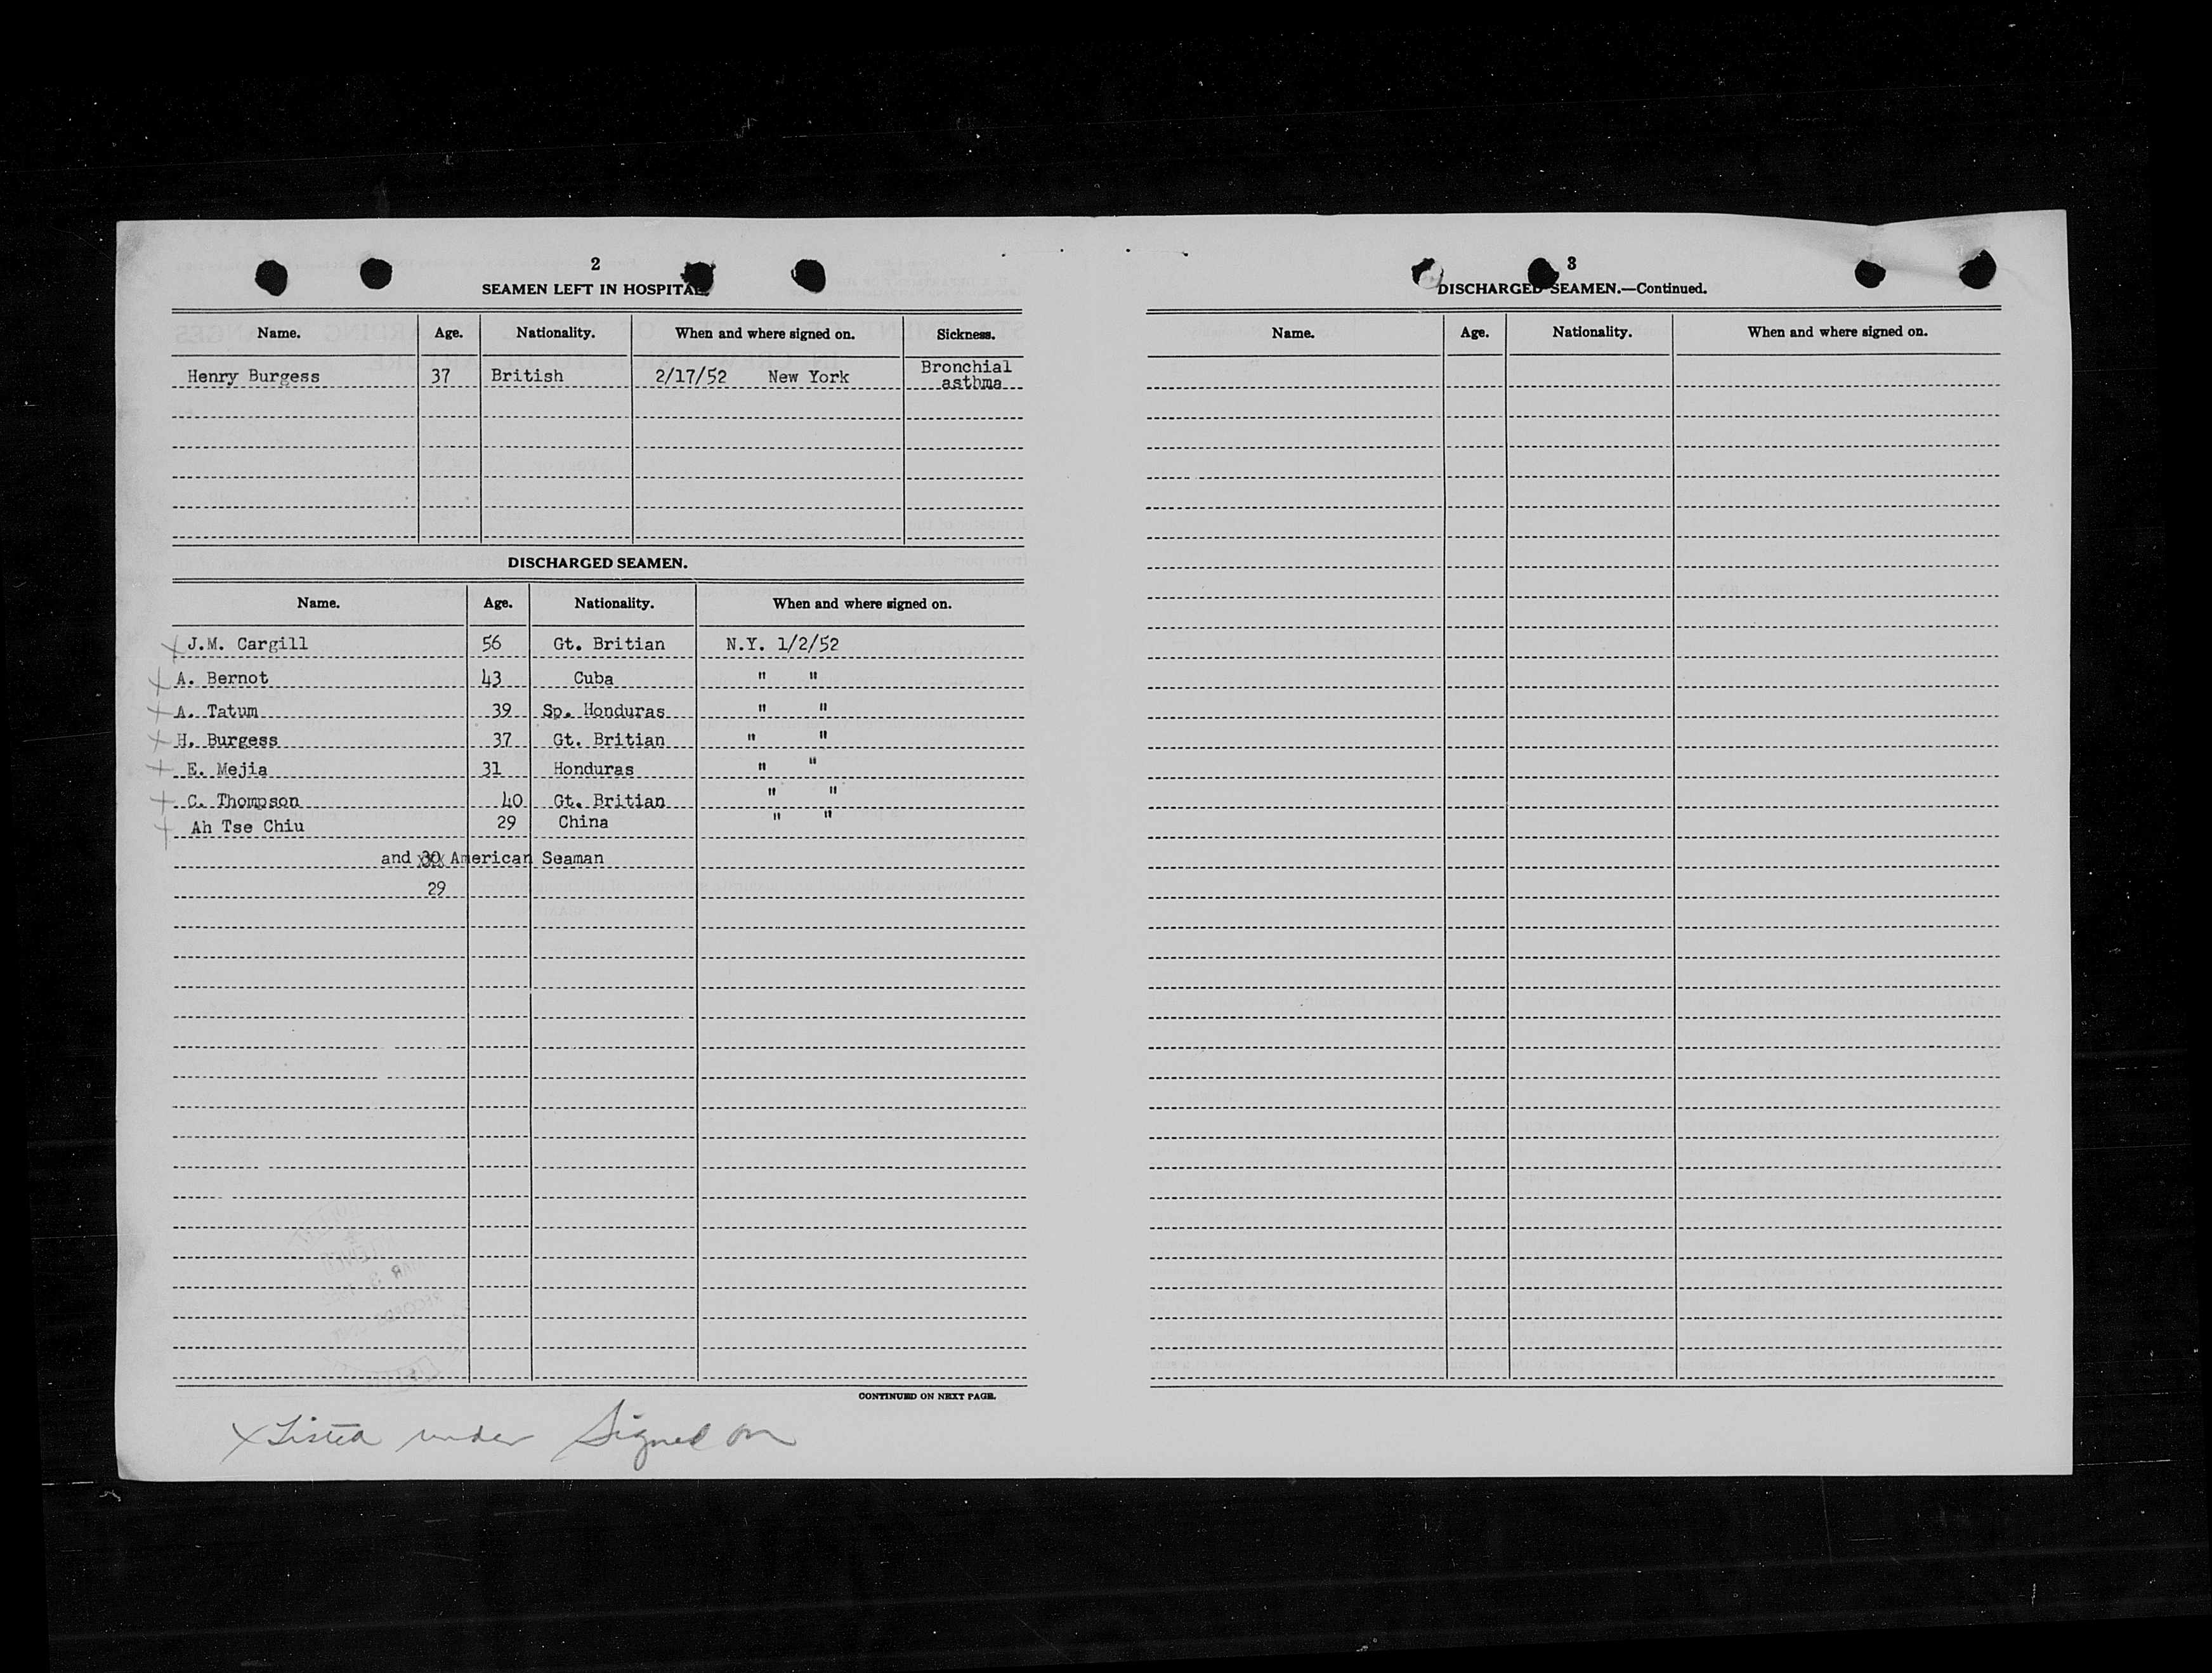 2
SEAMEN LEFT IN HOSPITAL
Name. Age. Nationality. When and where signed on. Sickness.
Henry Burgess 37 British 2/17/52 New York Bronchial asthma
DISCHARGED SEAMEN.
Name. Age. Nationality. When and where signed on.
J.M. Cargill 56 Gt. Britian N.Y. 1/2/52
A. Bernot 43 Cuba " "
A. Tatum 39 Sp. Honduras " "
H. Burgess 37 Gt. Britian " "
E. Mejia 31 Honduras " "
C. Thompson 40 Gt. Britian " "
Ah Tse Chiu 29 China " "
and 30 American Seaman
29
CONTINUED ON NEXT PAGE.
x Listed under Signed on
3
DISCHARGED SEAMEN.—Continued.
Name. Age. Nationality. When and where signed on.